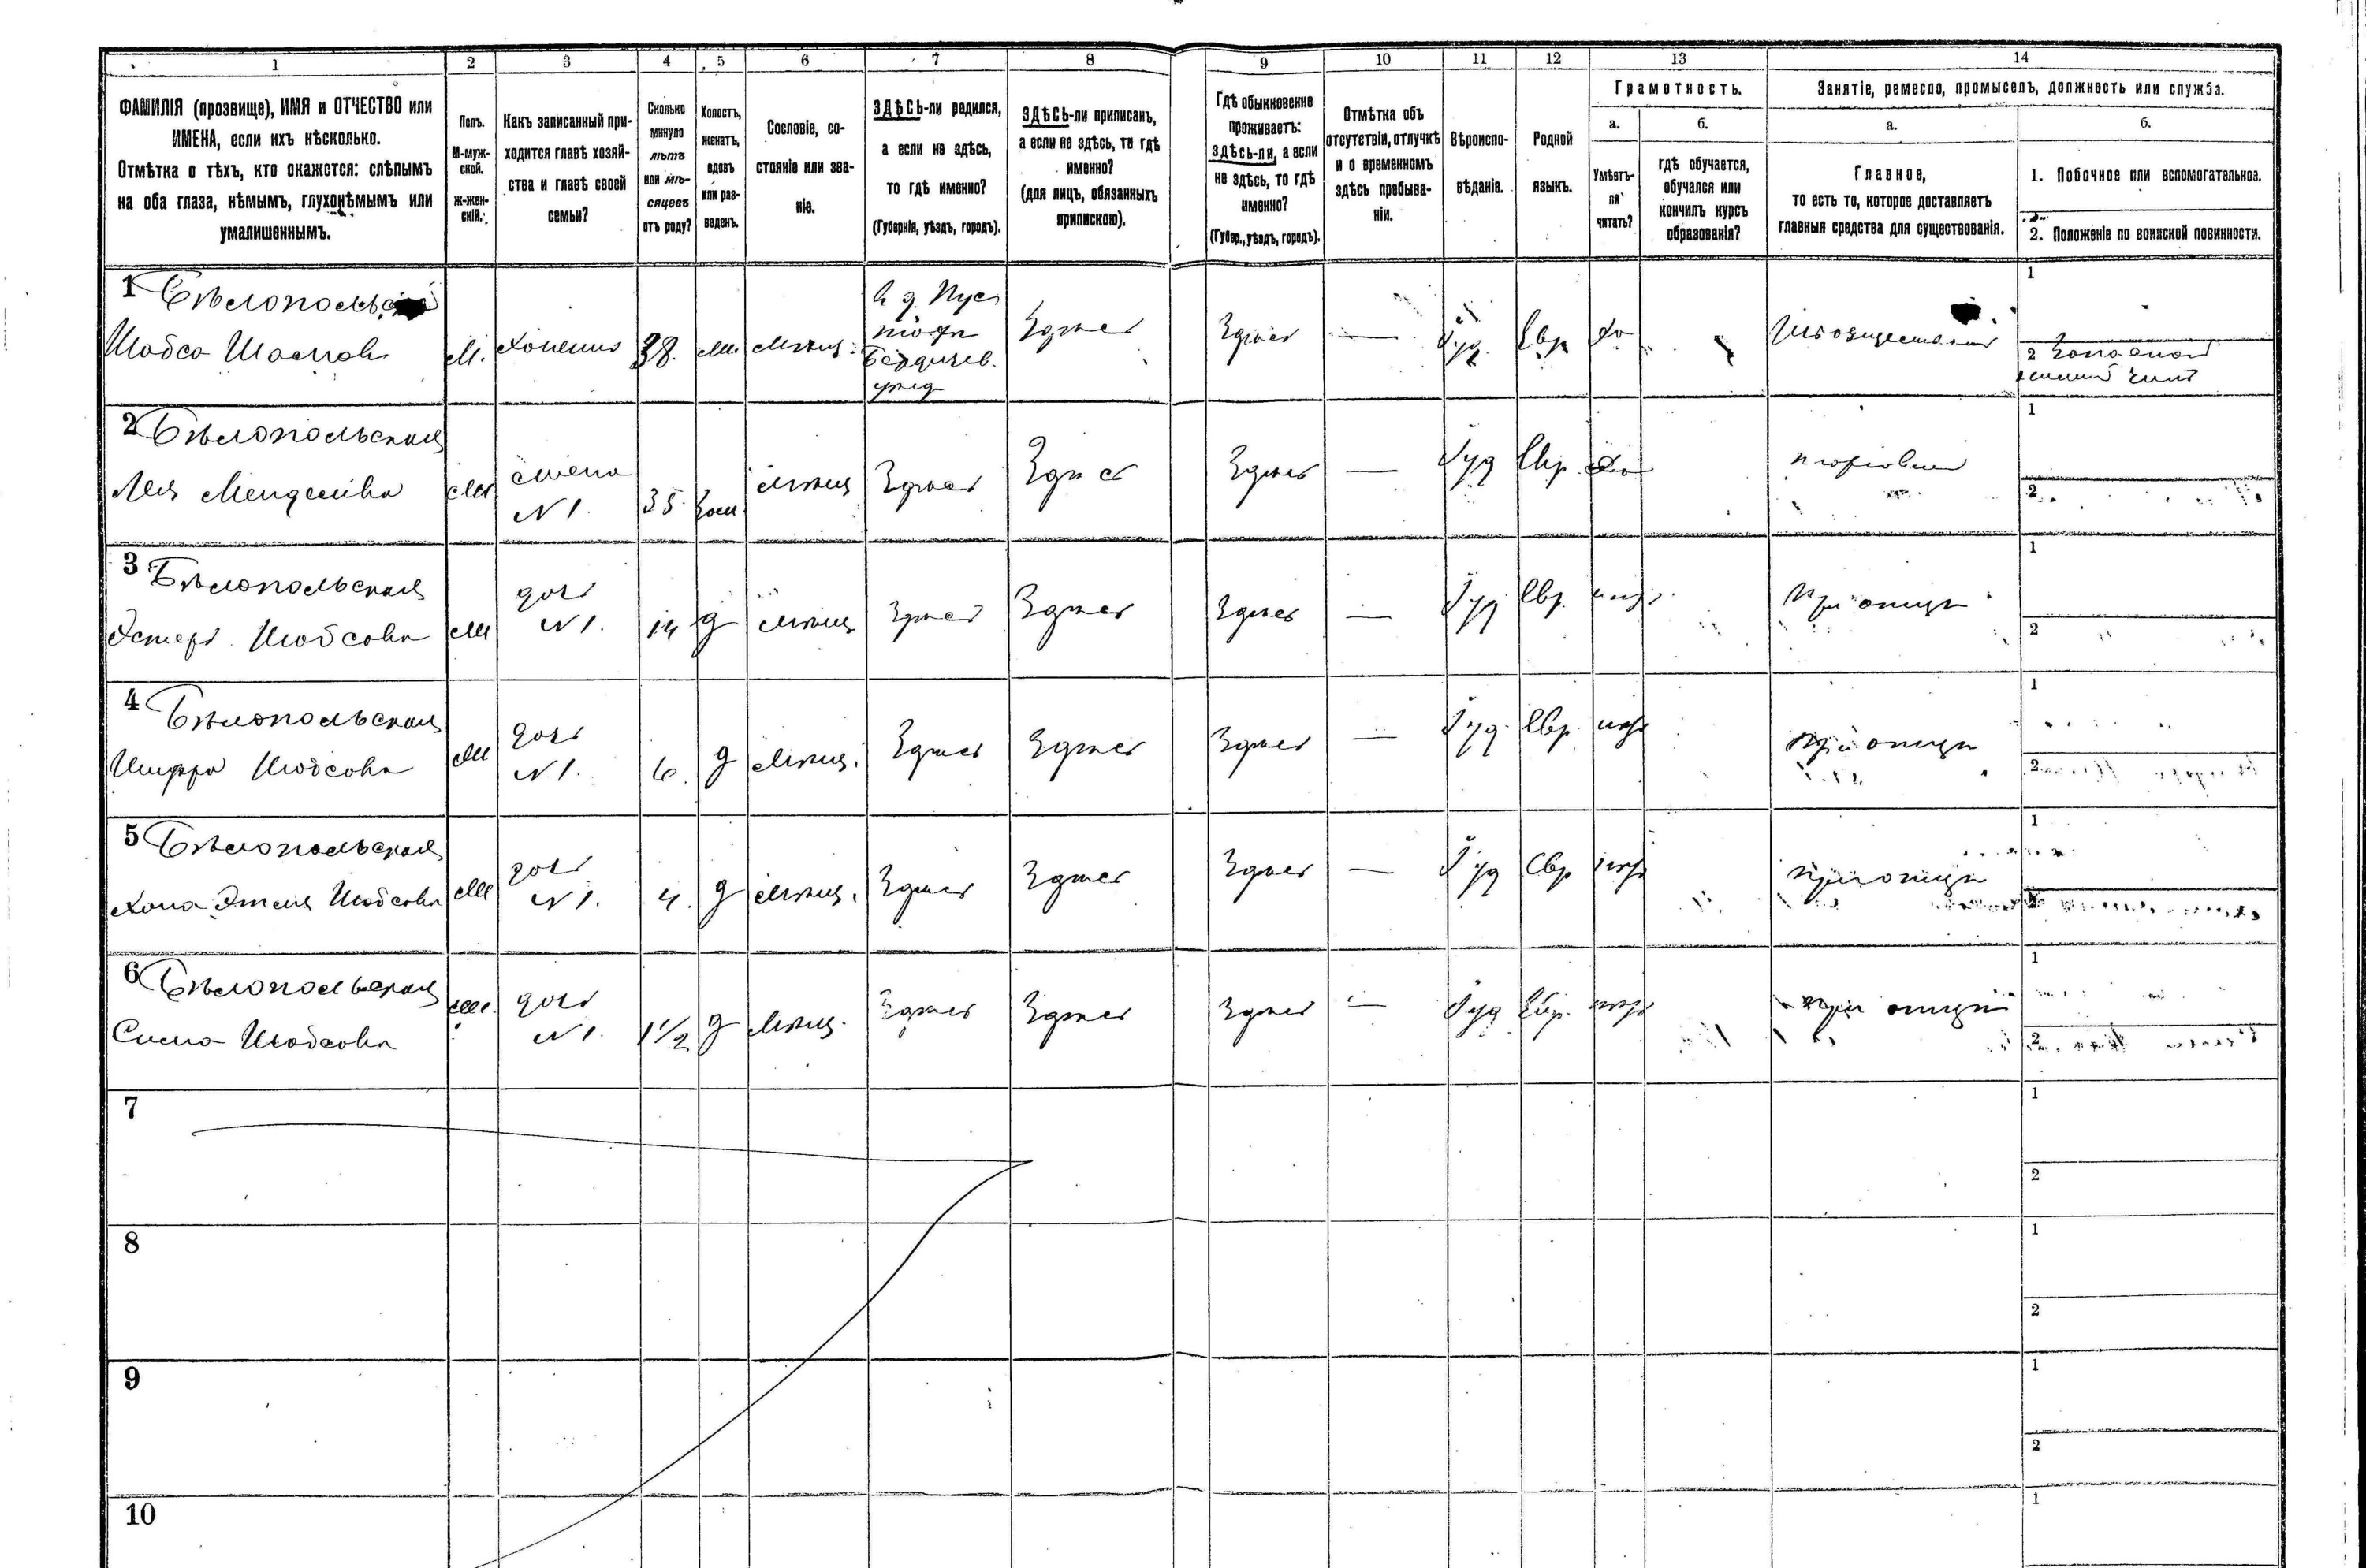 1 2 3 4 5 6 7 8 9 10 11 12 13 14
ФАМИЛІЯ (прозвище), ИМЯ и ОТЧЕСТВО или
ИМЕНА, если ихъ нѣсколько.
Отмѣтка о тѣхъ, кто окажется: слѣпымъ
на оба глаза, нѣмымъ, глухонѣмымъ или
умалишеннымъ.
Полъ.
М-муж-
ской.
ж-жен-
скій.
Какъ записанный при-
ходится главѣ хозяй-
ства и главѣ своей
семьи?
Сколько
минуло
лѣтъ
или мѣ-
сяцевъ
отъ роду?
Холостъ,
женатъ,
вдовъ
или раз-
веденъ.
Сословіе, со-
стояніе или зва-
ніе.
ЗДѢСЬ-ли родился,
а если не здѣсь,
то гдѣ именно?
(Губернія, уѣздъ, городъ).
ЗДѢСЬ-ли приписанъ,
а если не здѣсь, то гдѣ
именно?
(для лицъ, обязанныхъ
припискою).
Гдѣ обыкновенно
проживаетъ:
здѣсь-ли, а если
не здѣсь, то гдѣ
именно?
(Губер., уѣздъ, городъ).
Отмѣтка объ
отсутствіи, отлучкѣ
и о временномъ
здѣсь пребыва-
ніи.
Вѣроиспо-
вѣданіе.
Родной
языкъ.
Грамотность.
а.
Умѣетъ-
ли
читать?
б.
гдѣ обучается,
обучался или
кончилъ курсъ
образованія?
Занятіе, ремесло, промыселъ, должность или служба.
а.
Главное,
то есть то, которое доставляетъ
главныя средства для существованія.
б.
1. Побочное или вспомогательное.
2. Положеніе по воинской повинности.
1 Бѣлопольскій
М. 38. мѣщ. Здѣсь Здѣсь — Іуд. Евр да 1
Бердичев.
уѣзд
2
2 Бѣлопольская
Лея Менделева
жена
N 1. 35. зам. мѣщ Здѣсь Здѣсь Здѣсь — Іуд Евр. да 1
2
3 Бѣлопольская
Эстеръ
дочь
N 1. 14 д мѣщ Здѣсь Здѣсь Здѣсь — Іуд Евр. при отцѣ 1
2
4 Бѣлопольская
дочь
N 1. 6. д мѣщ. Здѣсь Здѣсь Здѣсь — Іуд. Евр. при отцѣ 1
2
5 Бѣлопольская
дочь
N 1. 4. д мѣщ. Здѣсь Здѣсь Здѣсь — Іуд Евр при отцѣ 1
2
6 Бѣлопольская
дочь
N 1. 1 1/2 д мѣщ. Здѣсь Здѣсь Здѣсь — Іуд Евр. при отцѣ 1
2
7 1
2
8 1
2
9 1
2
10 1